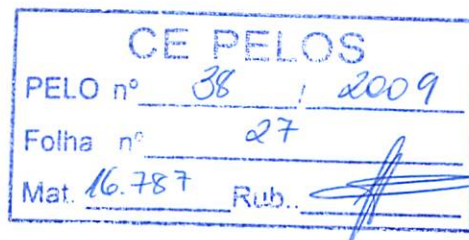 CE PELOS
PELO nº 38 / 2009
Folha nº 27
Mat. 16.787 Rub..